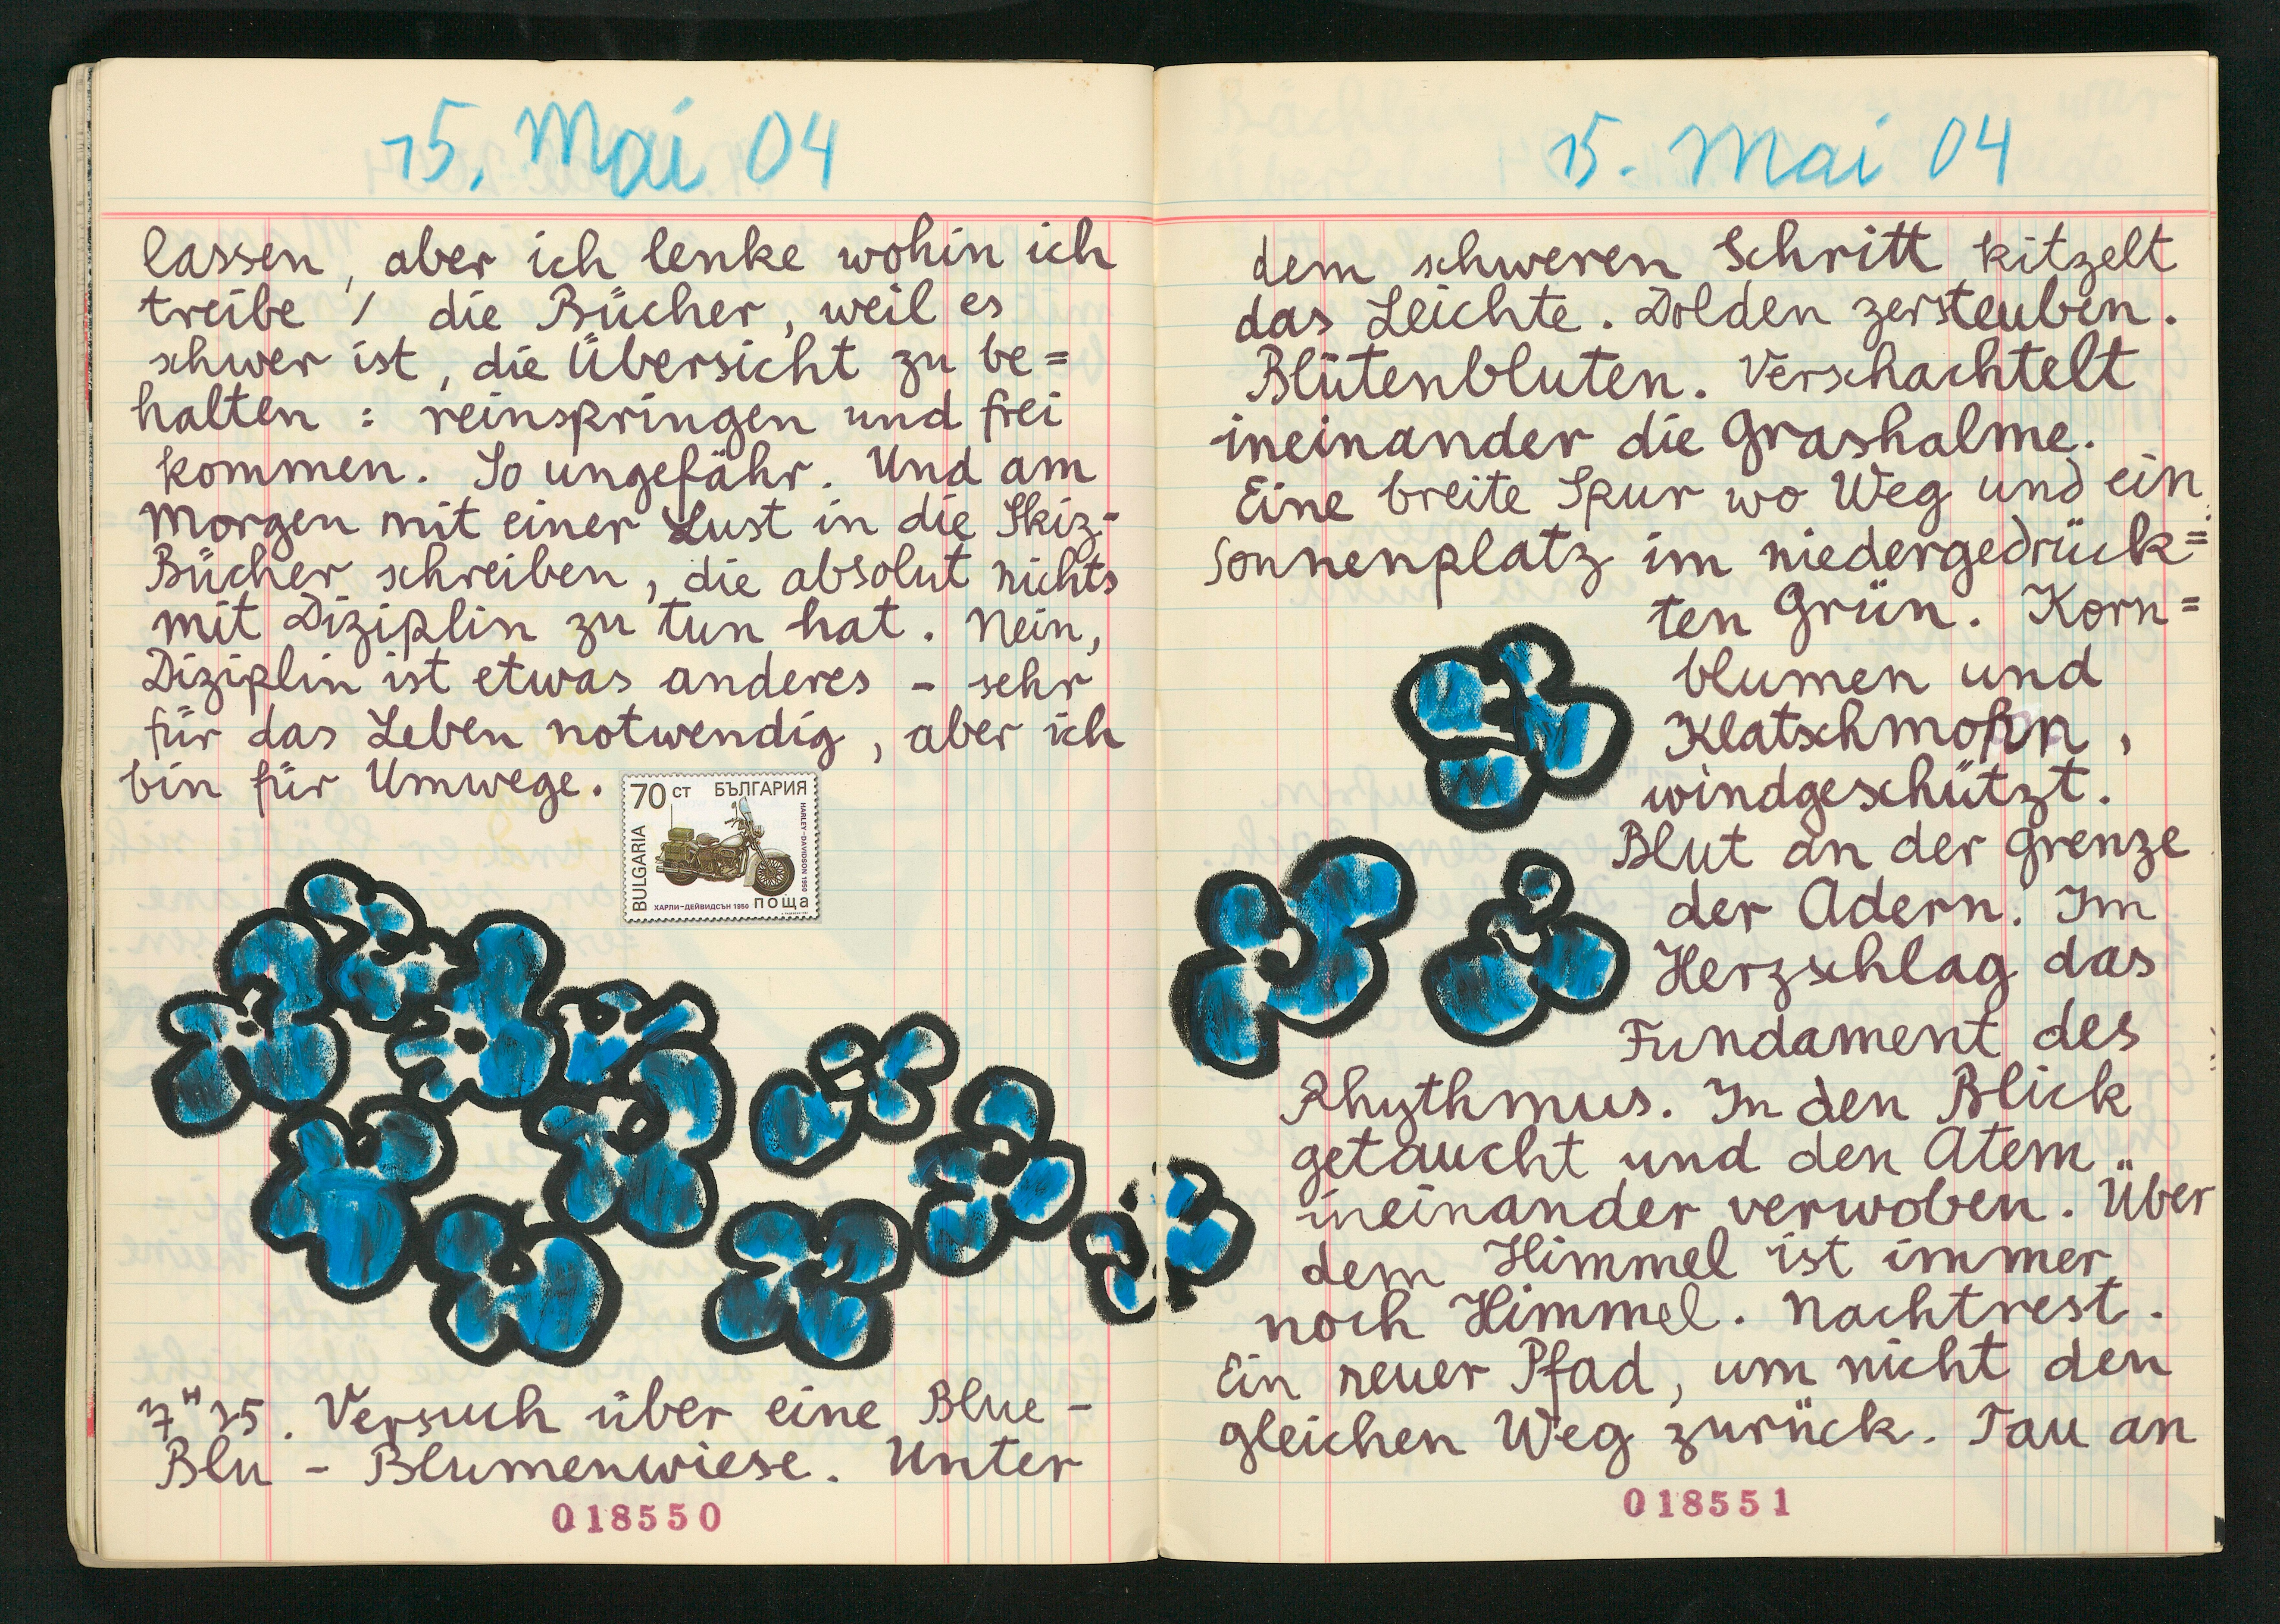 15. Mai 04
lassen, aber ich lenke wohin ich
treibe / die Bücher, weil es
schwer ist, die Übersicht zu be=
halten : reinspringen und frei
kommen. So ungefähr. Und am
Morgen mit einer Lust in die Skiz-
Bücher schreiben, die absolut nichts
mit Diziplin zu tun hat. Nein,
Diziplin ist etwas anderes – sehr
für das Leben notwendig, aber ich
bin für Umwege.
70 СТ БЪЛГАРИЯ
BULGARIA
HARLEY-DAVIDSON 1950
ХАРЛИ-ДЕЙВИДСЪН 1950 поща
7H15. Versuch über eine Blue-
Blu – Blumenwiese. Unter
018550
15. Mai 04
dem schweren Schritt kitzelt
das Leichte. Dolden zersteuben.
Blütenbluten. Verschachtelt
ineinander die Grashalme.
Eine breite Spur wo Weg und ein
Sonnenplatz im niedergedrück=
ten Grün. Korn=
blumen und
Klatschmohn,
windgeschützt.
Blut an der Grenze
der Adern. Im
Herzschlag das
Fundament des
Rhythmus. In den Blick
getaucht und den Atem
ineinander verwoben. Über
dem Himmel ist immer
noch Himmel. Nachtrest.
Ein neuer Pfad, um nicht den
gleichen Weg zurück. Tau an
018551